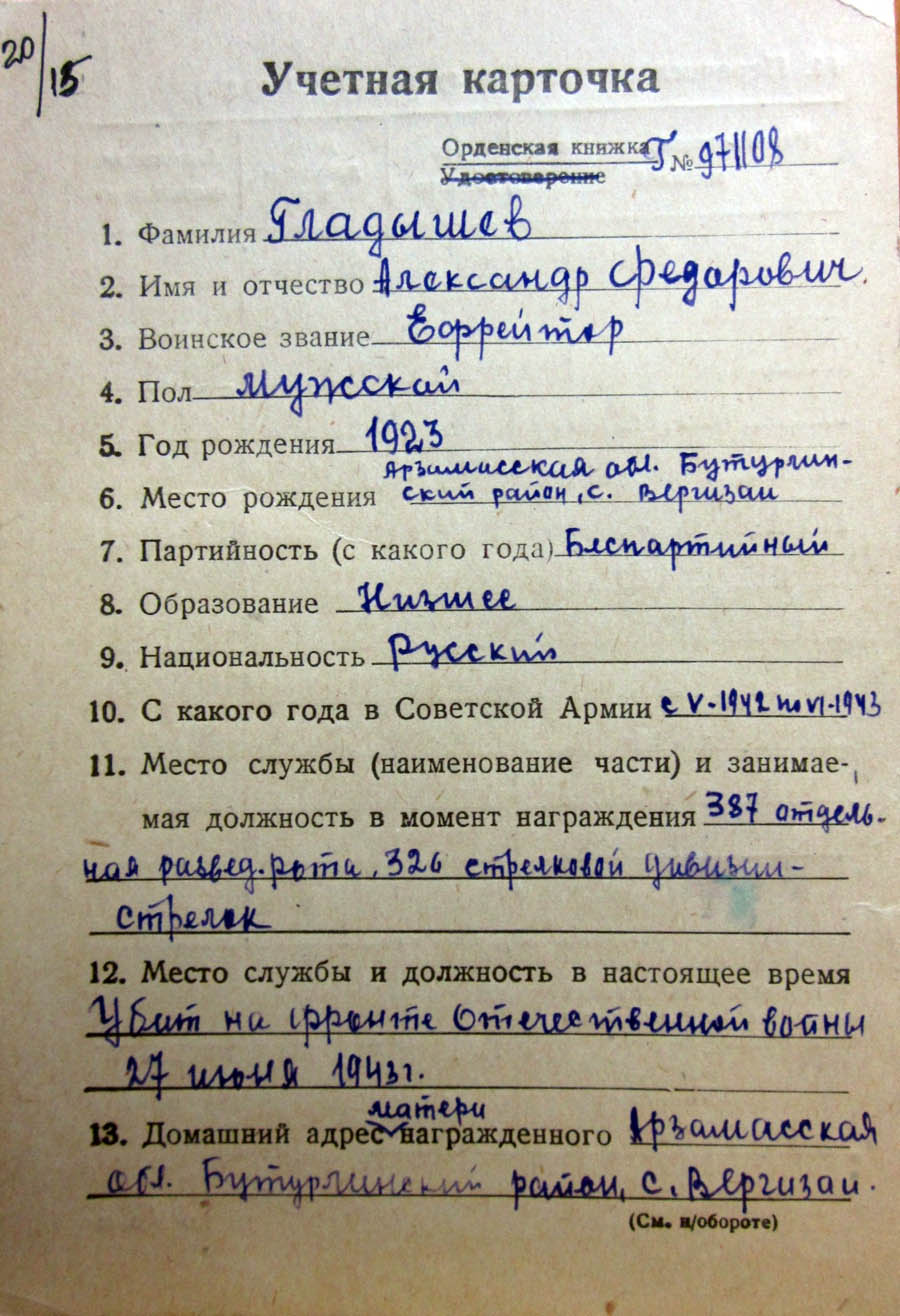 20/15
Учетная карточка
Орденская книжка Г № 971108
Удостоверение
1. Фамилия Гладышев
2. Имя и отчество Александр Федорович.
3. Воинское звание Ефрейтор
4. Пол Мужской
5. Год рождения 1923
Арзамасская обл. Бутурлин-
6. Место рождения ский район, с. Вергизаи
7. Партийность (с какого года) Беспартийный
8. Образование Низшее
9. Национальность Русский
10. С какого года в Советской Армии с V-1942 по VI-1943
11. Место службы (наименование части) и занимае-
мая должность в момент награждения 387 отдель-
ная развед. рота, 326 стрелковой дивизии-
стрелок
12. Место службы и должность в настоящее время
Убит на фронте Отечественной войны
27 июня 1943г.
матери
13. Домашний адрес награжденного Арзамасская
обл. Бутурлинский район, с. Вергизаи.
(См. н/обороте)